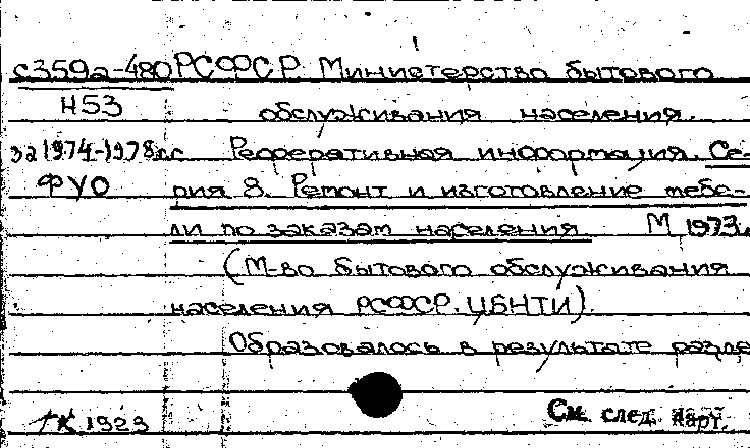 с359а-480 РСФСР Министерство бытового
Н53 обслуживания населения.
за 1974-1978гг Реферативная информация. Се-
ФУО рия 8. Ремонт и изготовление мебе-
ли по заказам населения М 1973
(М-во бытового обслуживания
населения РСФСР. ЦБНТИ).
Образовалось в результате разде
1923 См. след. карт.